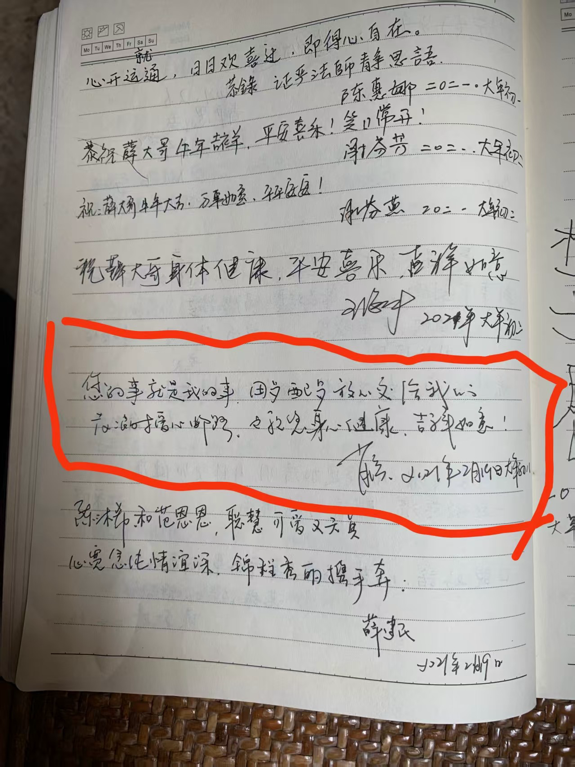 Mo Tu We Th Fr Sa Su
就
心开运通，日日欢喜过，即得心自在。
恭錄 证严法師静思語
陈惠娜 二〇二一.大年初二
恭祝薛大哥牛年吉祥，平安喜乐！笑口常开！
谢芬芳 二〇二一.大年初二
祝：薛大哥牛年大吉，万事如意，平平安安！
谢芬燕 二〇二一 大年初二
祝薛大哥身体健康，平安喜乐，吉祥如意
2021年大年初二
您的事就是我的事，因为 放心交给我
身心健康，吉祥如意！
2021年2月19日大年初八
陈沐希和范恩恩，聪慧可爱又天真
心宽念纯情谊深，锦程秀丽携手奔：
薛建民
2021年2月19日
大年